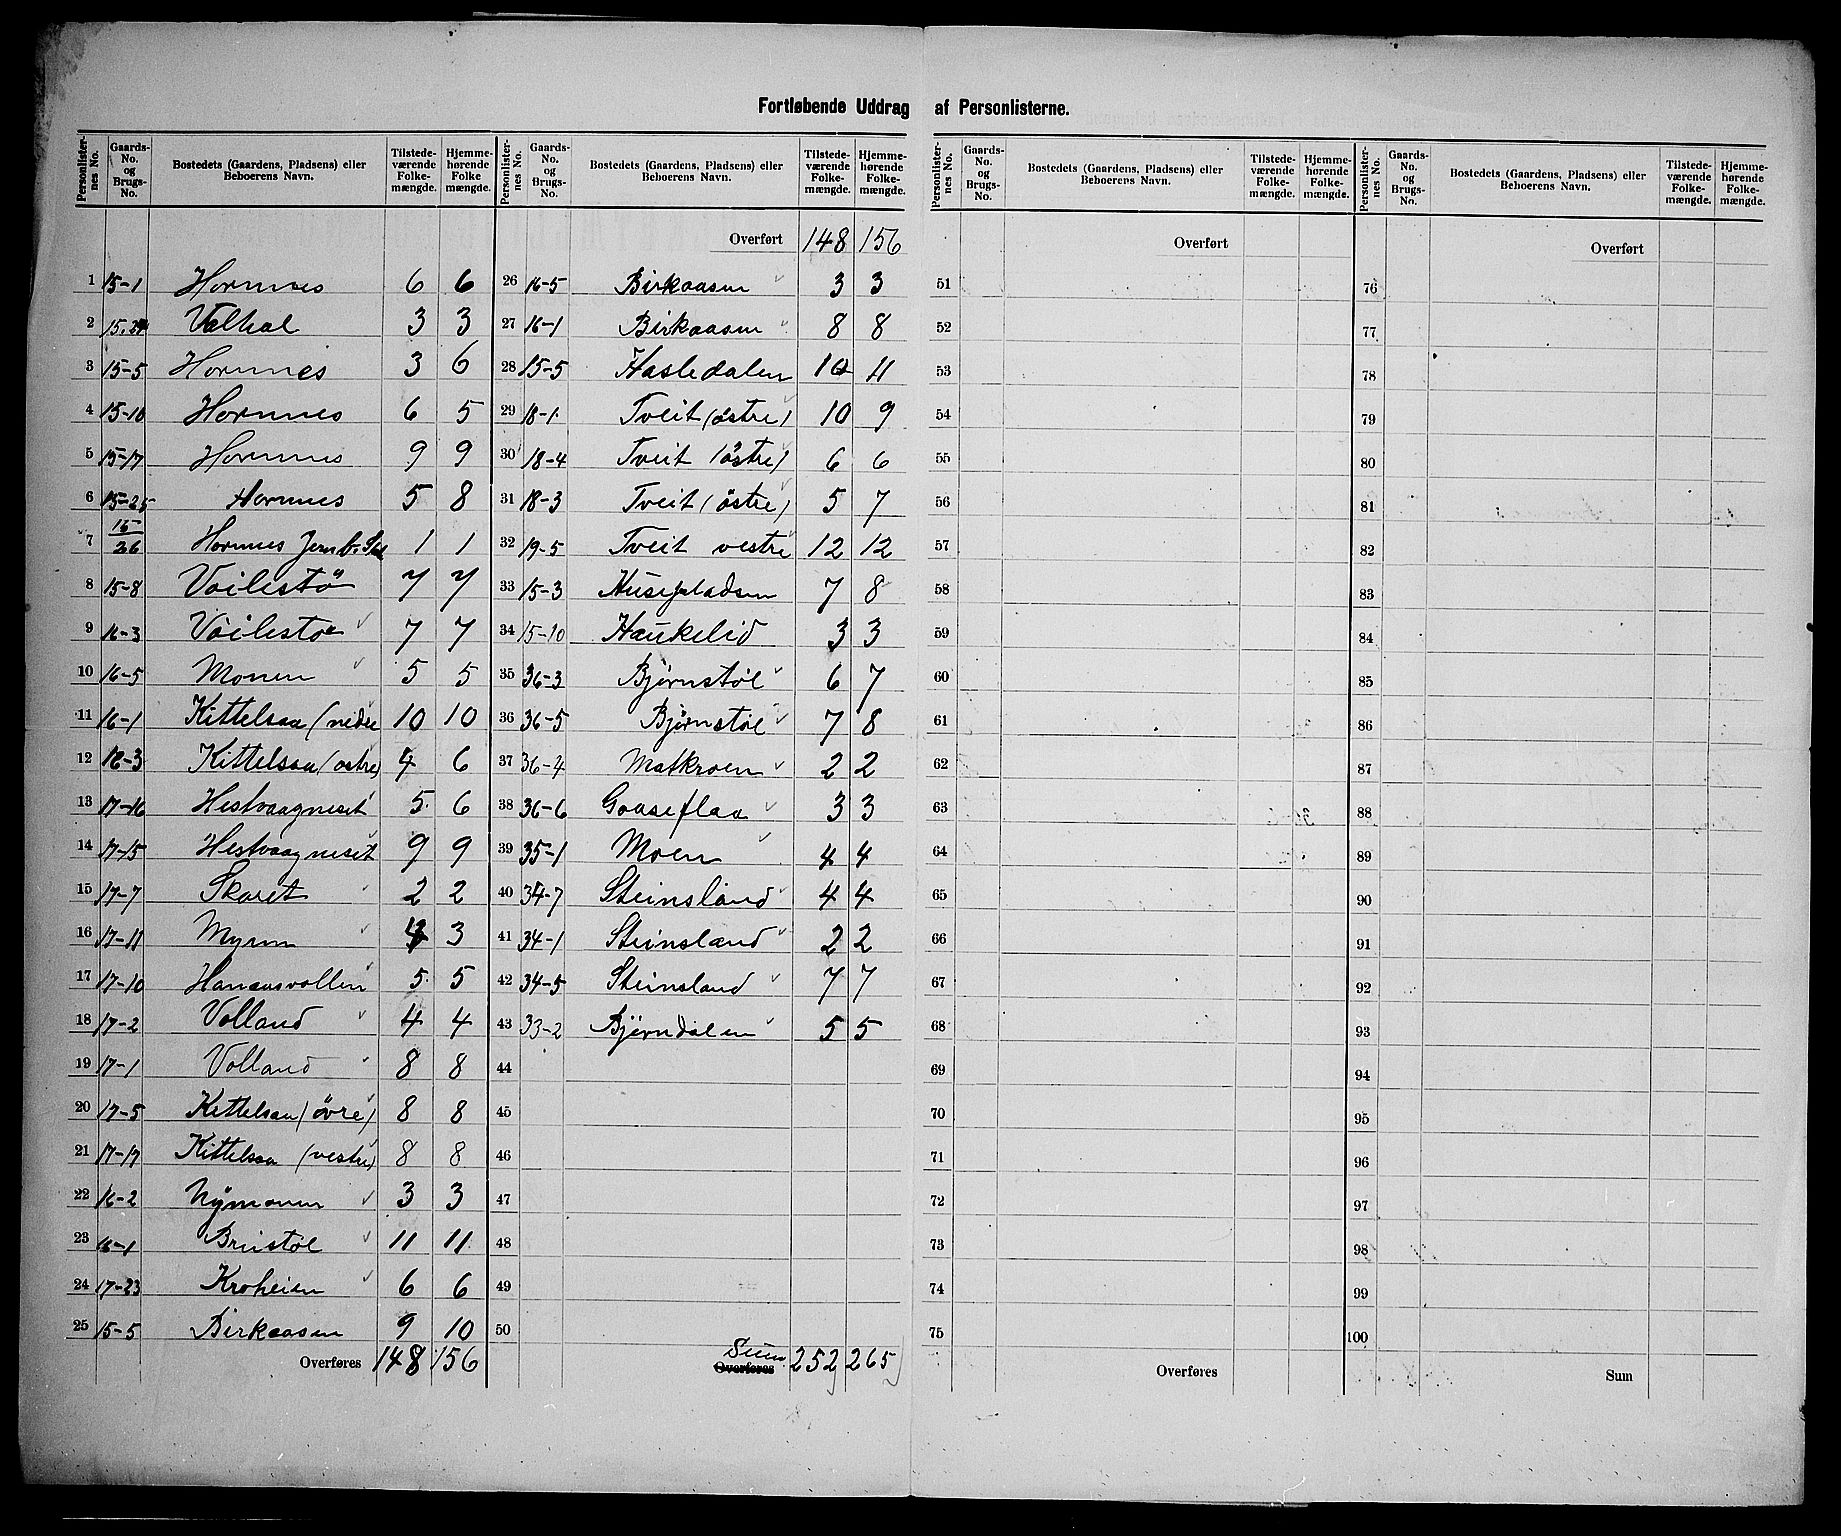 Fortløbende Uddrag af Personlisterne.
Personlister-nes No. Gaards-No. og Brugs-No. Bostedets (Gaardens, Pladsens) eller Beboerens Navn. Tilstede-værende Folke-mængde. Hjemme-hørende Folke mængde.
1 15-1 Hornnes 6 6
2 15.24 Valhal 3 3
3 15-5 Hornnes 3 6
4 15-10 Hornnes 6 5
5 15-17 Hornnes 9 9
6 15-25 Hornnes 5 8
7 15/26 Hornnes Jernb. 1 1
8 15-8 Voilestö 7 7
9 16-3 Voilestöe 7 7
10 16-5 Monen 5 5
11 16-1 Kittelsaa (nedre 10 10
12 18-3 Kittelsaa (østre) 4 6
13 17-16 Hestvaagneset 5. 6
14 17-15 Hestvaagneset 9 9
15 17-7 Skaret 2 2
16 17-11 Myren 3
17 17-10 Hanaasvollen 5. 5
18 17-2 Volland 4 4
19 17-1 Volland 8 8
20 17-5 Kittelsaa (övre) 8 8
21 17-17 Kittelsaa (vestre) 8 8
22 16-2 Nymonen 3 3
23 16-1 Brustøl 11 11
24 17-23 Kroheien 6 6
25 15-5 Birkaasen 9 10
Overføres 148 156
Personlister-nes No. Gaards-No. og Brugs-No. Bostedets (Gaardens, Pladsens) eller Beboerens Navn. Tilstede-værende Folke-mængde. Hjemme-hørende Folke-mængde.
Overført 148 156
26 16-5 Birkaasen 3 3
27 16-1 Birkaasen 8 8
28 15-5 Hasledalen 10 11
29 18-1. Tveit (östre) 10 9
30 18-4 Tveit (östre) 6 6
31 18-3 Tveit (östre) 5 7
32 19-5 Tveit vestre 12 12
33 15-3 Husepladsen 7 8
34 15-10 Haukelid 3 3
35 36-3 Bjørnstøl 6 7
36 36-5 Bjørnstøl 7 8
37 36-4 Matkroen 2 2
38 36-6 Gaaseflaa 3 3
39 35-1 Moen 4 4
40 34-7 Steinsland 4 4
41 34-1 Steinsland 2 2
42 34-5 Steinsland 7 7
43 33-2 Bjørndalen 5 5
44
45
46
47
48
49
50
Sum
Overføres 252 265
Personlister-nes No. Gaards-No. og Brugs-No. Bostedets (Gaardens, Pladsens) eller Beboerens Navn. Tilstede-værende Folke-mængde. Hjemme-hørende Folke-mængde.
Overført
51
52
53
54
55
56
57
58
59
60
61
62
63
64
65
66
67
68
69
70
71
72
73
74
75
Overføres
Personlister-nes No. Gaards-No. og Brugs-No. Bostedets (Gaardens, Pladsens) eller Beboerens Navn. Tilstede-værende Folke-mængde. Hjemme-hørende Folke-mængde.
Overført
76
77
78
79
80
81
82
83
84
85
86
87
88
89
90
91
92
93
94
95
96
97
98
99
100
Sum